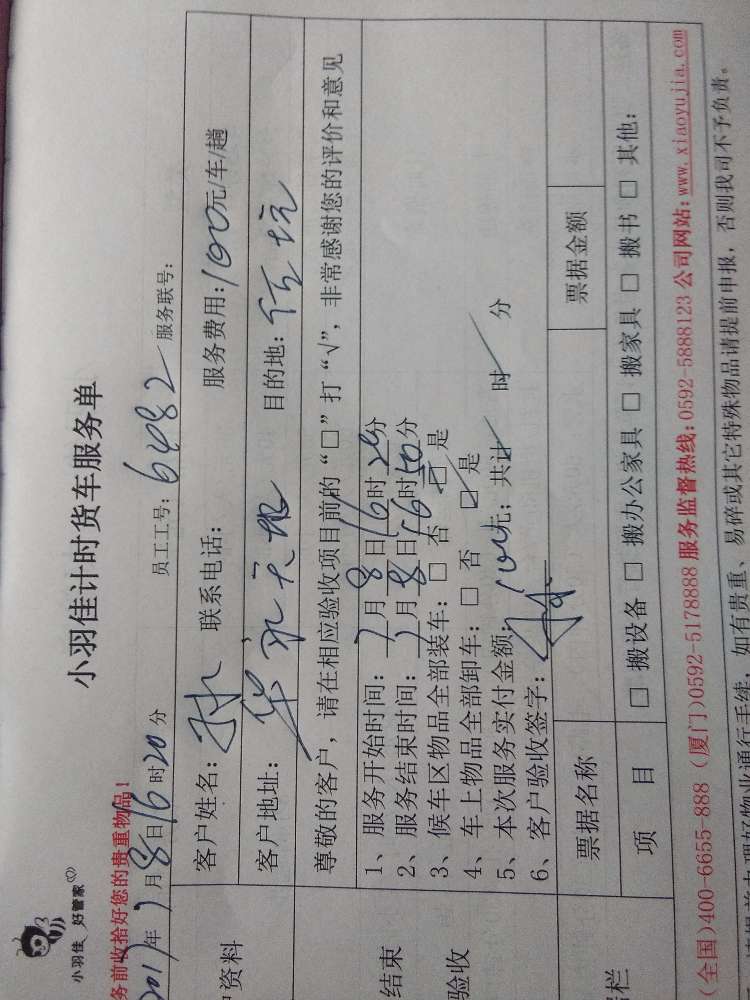 小羽佳 好管家
小羽佳计时货车服务单
务前收拾好您的贵重物品!
201 年 7 月 8 日 16 时 20 分 员工工号: 6482 服务联号:
户资料
客户姓名: 联系电话: 服务费用: 100元/车/趟
客户地址: 目的地:
尊敬的客户, 请在相应验收项目前的“□”打“√”, 非常感谢您的评价和意见
结束
验收
1、服务开始时间: 7月8日16时20分
2、服务结束时间: 7月8日16时50分
3、候车区物品全部装车: □ 否 ☑ 是
4、车上物品全部卸车: □ 否 ☑ 是
5、本次服务实付金额: 100元; 共计 时 分
6、客户验收签字:
票据名称 票据金额
栏
项 目 □ 搬设备 □ 搬办公家具 □ 搬家具 □ 搬书 □ 其他:
(全国)400-6655-888 (厦门)0592-5178888 服务监督热线:0592-5888123 公司网站:www.xiaoyujia.com
办理好物业通行手续, 如有贵重、易碎或其它特殊物品请提前申报, 否则我司不予负责。